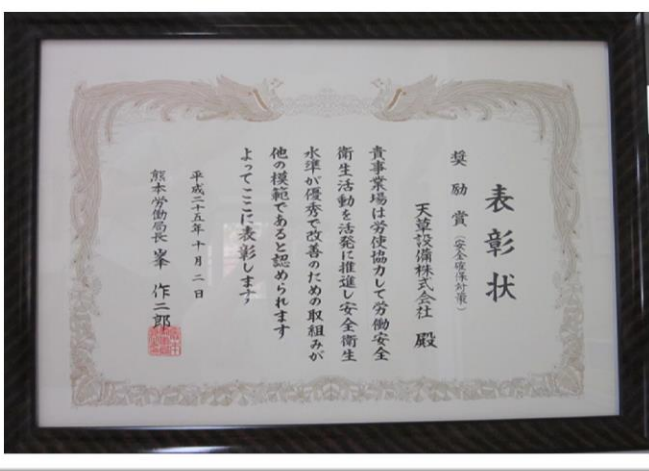 表彰状
奨励賞(安全確保対策)
天草設備株式会社 殿
貴事業場は労使協力して労働安全
衛生活動を活発に推進し安全衛生
水準が優秀で改善のための取組みが
他の模範であると認められます
よってここに表彰します
平成二十五年十月二日
熊本労働局長 峯 作二郎